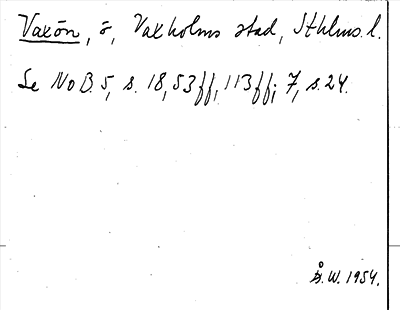 Vaxön, ö, Vaxholms stad, Sthlms. l.
Se NoB. 5, s. 18, 53ff, 113ff; 7, s. 24.
Å. W. 1954.